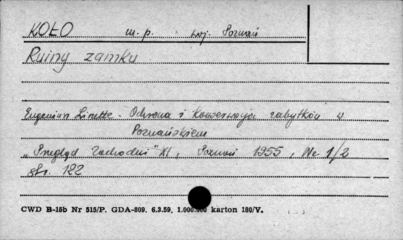 KOŁO m. p. woj. Poznań
Ruiny zamku
Eugeniusz Linette - Ochrona i konserwacja zabytków w
Poznańskiem
"Przegląd Zachodni" XI, Poznań 1955, Nr 1/2
str. 122
CWD B-15b Nr 515/P. GDA-809. 6.3.59, 1.000.000 karton 180/V.